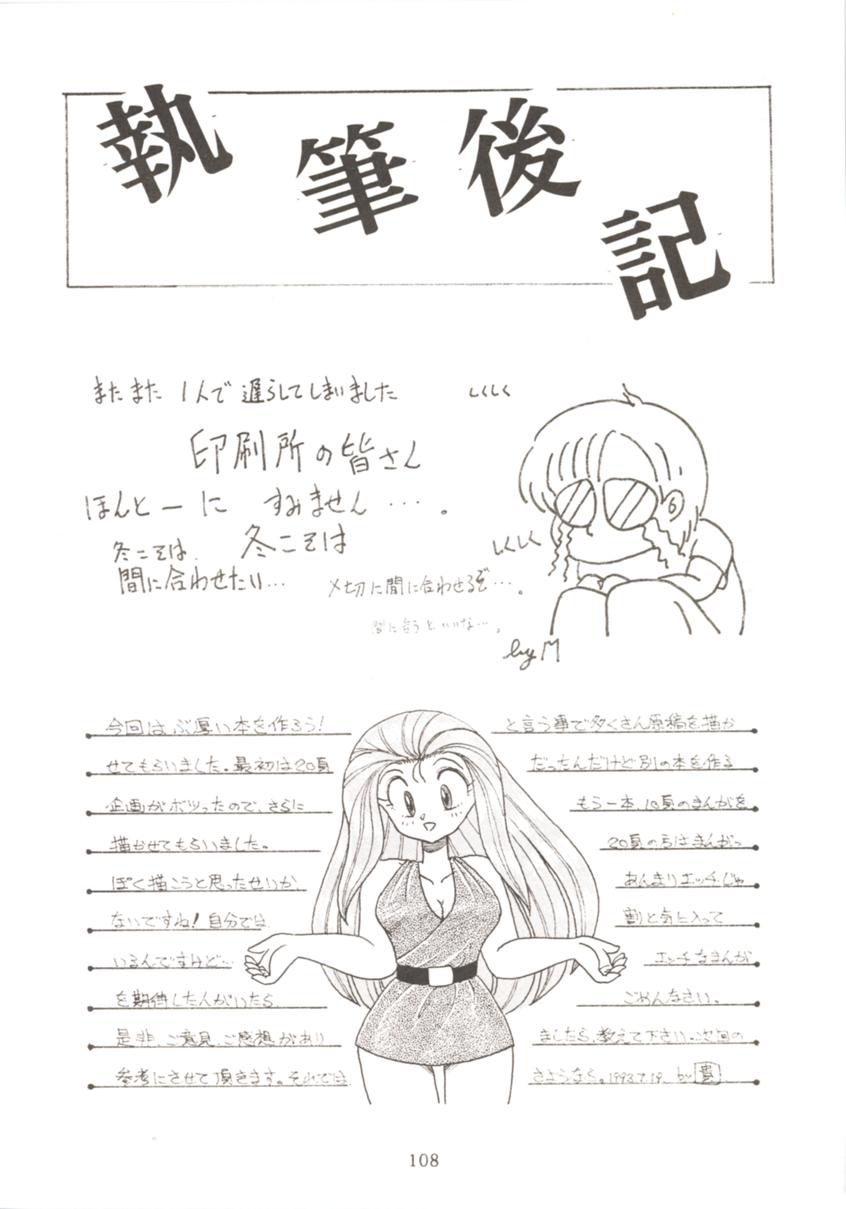 執筆後記
またまた 1人で遅らしてしまいました
しくしく
印刷所の皆さん
ほんとーに すみません…。
冬こそは 冬こそは
しくしく
間に合わせたい… 〆切に間に合わせるぞ…。
間に合うといいな…。
by M
今回はぶ厚い本を作ろう! と言う事で多くさん原稿を描か
せてもらいました。最初は20頁 だったんだけど別の本を作る
企画がボツったので、さらに もう一本、10頁のまんがを
描かせてもらいました。 20頁の方はまんがっ
ぽく描こうと思ったせいか あんまりエッチじゃ
ないですね!自分では 割と気に入って
いるんですけど… エッチなまんが
を期待した人がいたら ごめんなさい。
是非、ご意見、ご感想があり ましたら、教えて下さい。次回の
参考にさせて頂きます。それでは さようなら。1993.7.19. by 貴
108